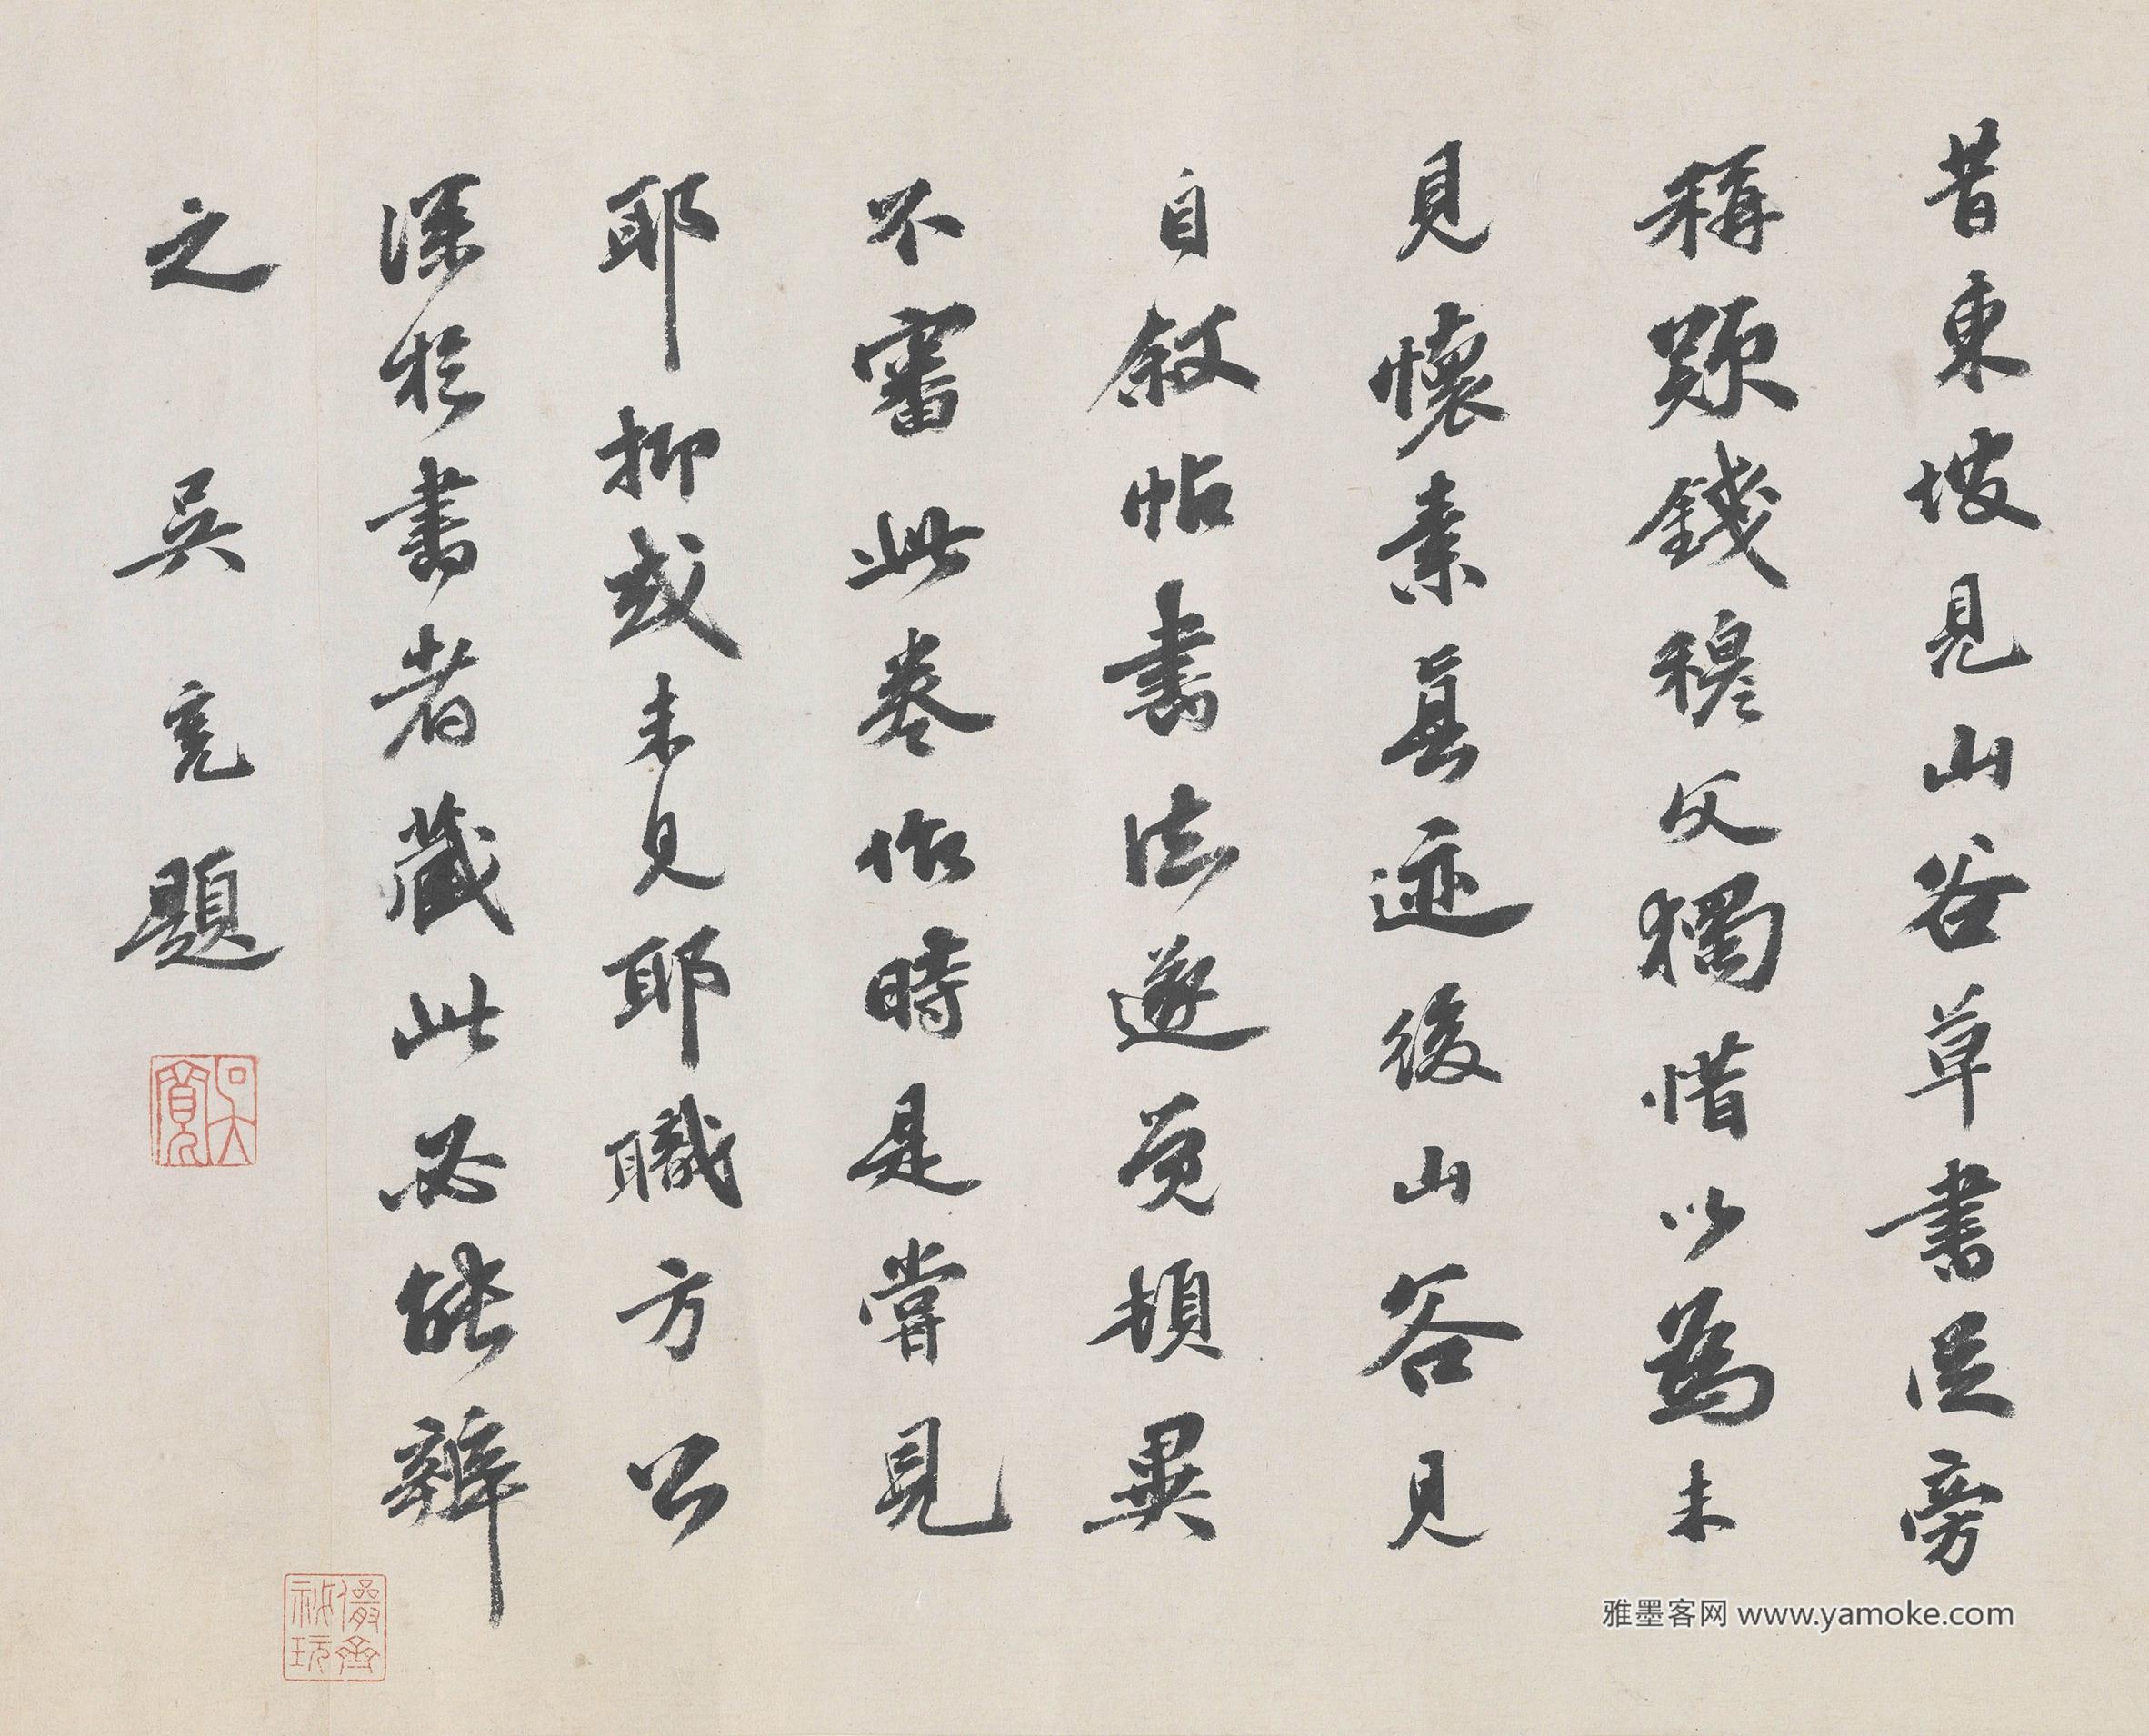 昔東坡見山谷草書從旁
稱歎錢穆父獨惜以為未
見懷素真迹後山谷見
自敘帖書法遂覺頓異
不審此卷作時是嘗見
耶抑或未見耶職方公
深於書者藏此必能辨
之 吳寬題
吳寬
儼齋秘玩
雅墨客网 www.yamoke.com